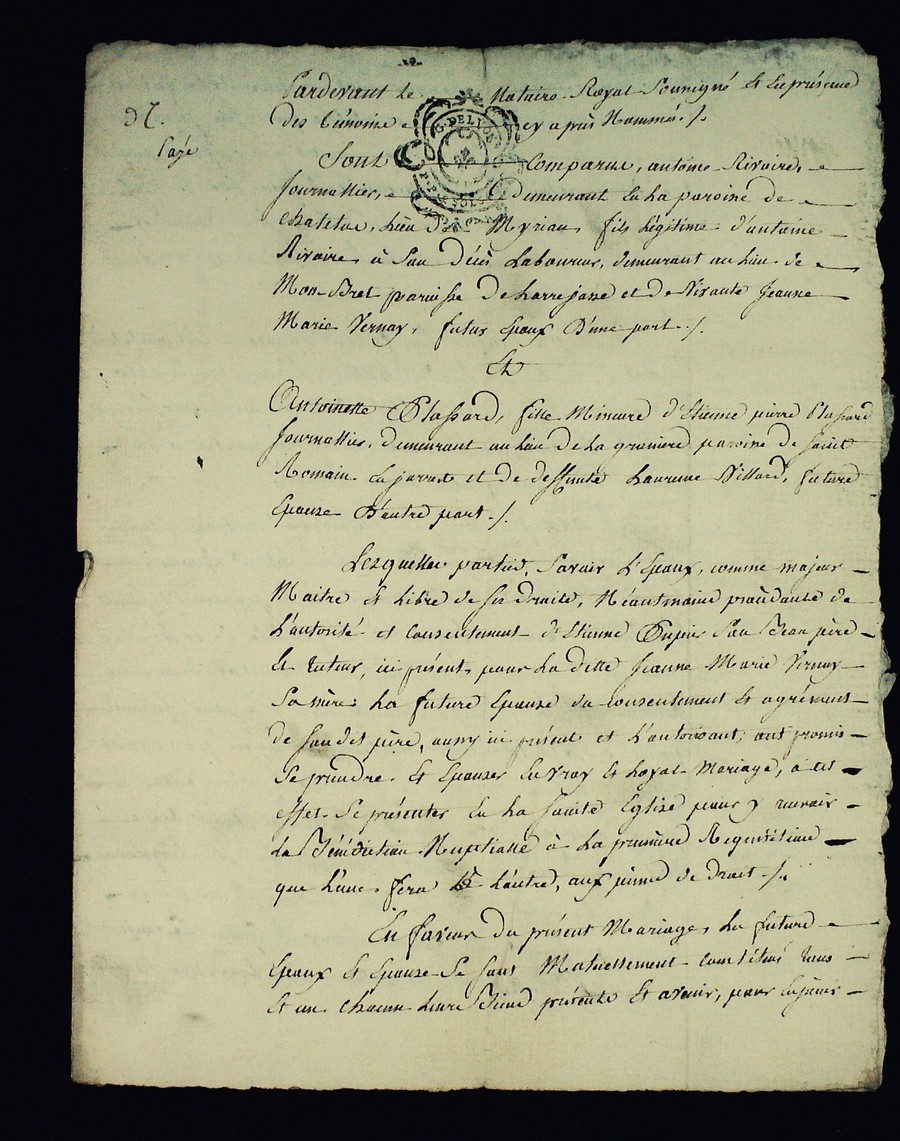 Pardevant le Notaire Royal Soussigné Et En présence
Des témoins cy après Nommés ./.
37.
Payé
Sont Comparus, antoine Rivoire,
Journallier, demeurant En la paroisse de
chatelus, lieu De Myriau, fils légitime d'antoine
Rivoire, à Son Décès Laboureur, demeurant au lieu de
Mon Bret paroisse De Larrejasse et de vivante Jeanne
Marie Vernay, futur Epoux D'une part ./.
Et
Antoinette Plassard, fille Mineure d'Etienne pierre Plassard
Journallier, demeurant au lieu de La paroisse de Saint
Romain En jarret et de deffunte Laurence Villard, future
Epouze D'autre part ./.
Lesquelles parties, Savoir L'Epoux, comme majeur
Maitre Et Libre de Ses Droits, Néantmoins procédante de
L'autorité et Consentement d'Etienne Son Beau père
Et tuteur, ici présent, pour La ditte Jeanne Marie Vernay
Sa mère; La future Epouze du consentement Et agrément
de Son dit père, aussy ici présent et L'autorisant; ont promis
Se prendre Et Epouzer En vray Et Loyal Mariage, à cet
effet Se présenter En La Sainte Eglise pour y recevoir
La Bénédiction Nuptialle à La première Requisition
que L'une fera à L'autre, aux peines de Droit ./.
En faveur Du présent Mariage, Les futurs
Epoux Et Epouze Se Sont Mutuellement Constitués tous
Et un Chacun Leurs Biens présents Et avenir, pour